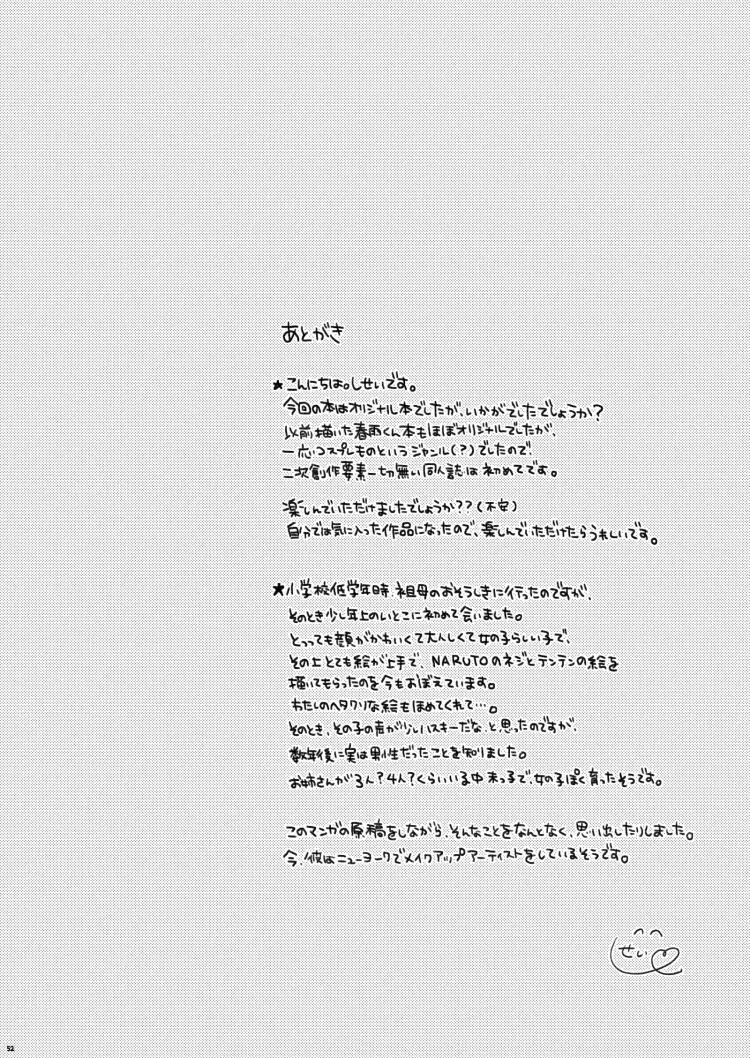 あとがき
★こんにちは。しせいです。
今回の本はオリジナル本でしたが、いかがでしたでしょうか？
以前描いた春雨くん本もほぼオリジナルでしたが、
一応コスプレものというジャンル(？)でしたので！
二次創作要素一切無い同人誌は初めてです。
楽しんでいただけましたでしょうか？？(不安)
自分では気に入った作品になったので、楽しんでいただけたらうれしいです。
★小学校低学年時、祖母のおそうしきに行ったのですが、
そのとき少し年上のいとこに初めて会いました。
とっっても顔がかわいくて大人しくて女の子らしい子で、
その上とても絵が上手で、NARUTOのネジとテンテンの絵を
描いてもらったのを今もおぼえています。
わたしのヘタクソな絵もほめてくれて…。
そのとき、その子の声が少しハスキーだな、と思ったのですが、
数年後に実は男性だったことを知りました。
お姉さんが3人？4人？くらいいる中、末っ子で、女の子ぽく育ったそうです。
このマンガの原稿をしながら、そんなことをなんとなく、思い出したりしました。
今、彼はニューヨークでメイクアップアーティストをしているそうです。
せい
52